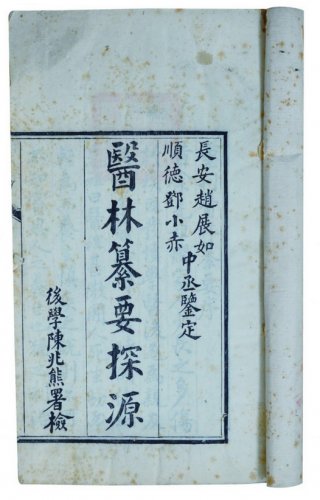 長安趙展如
順德鄧小赤
中丞鑒定
醫林纂要探源
後學陳兆熊署檢